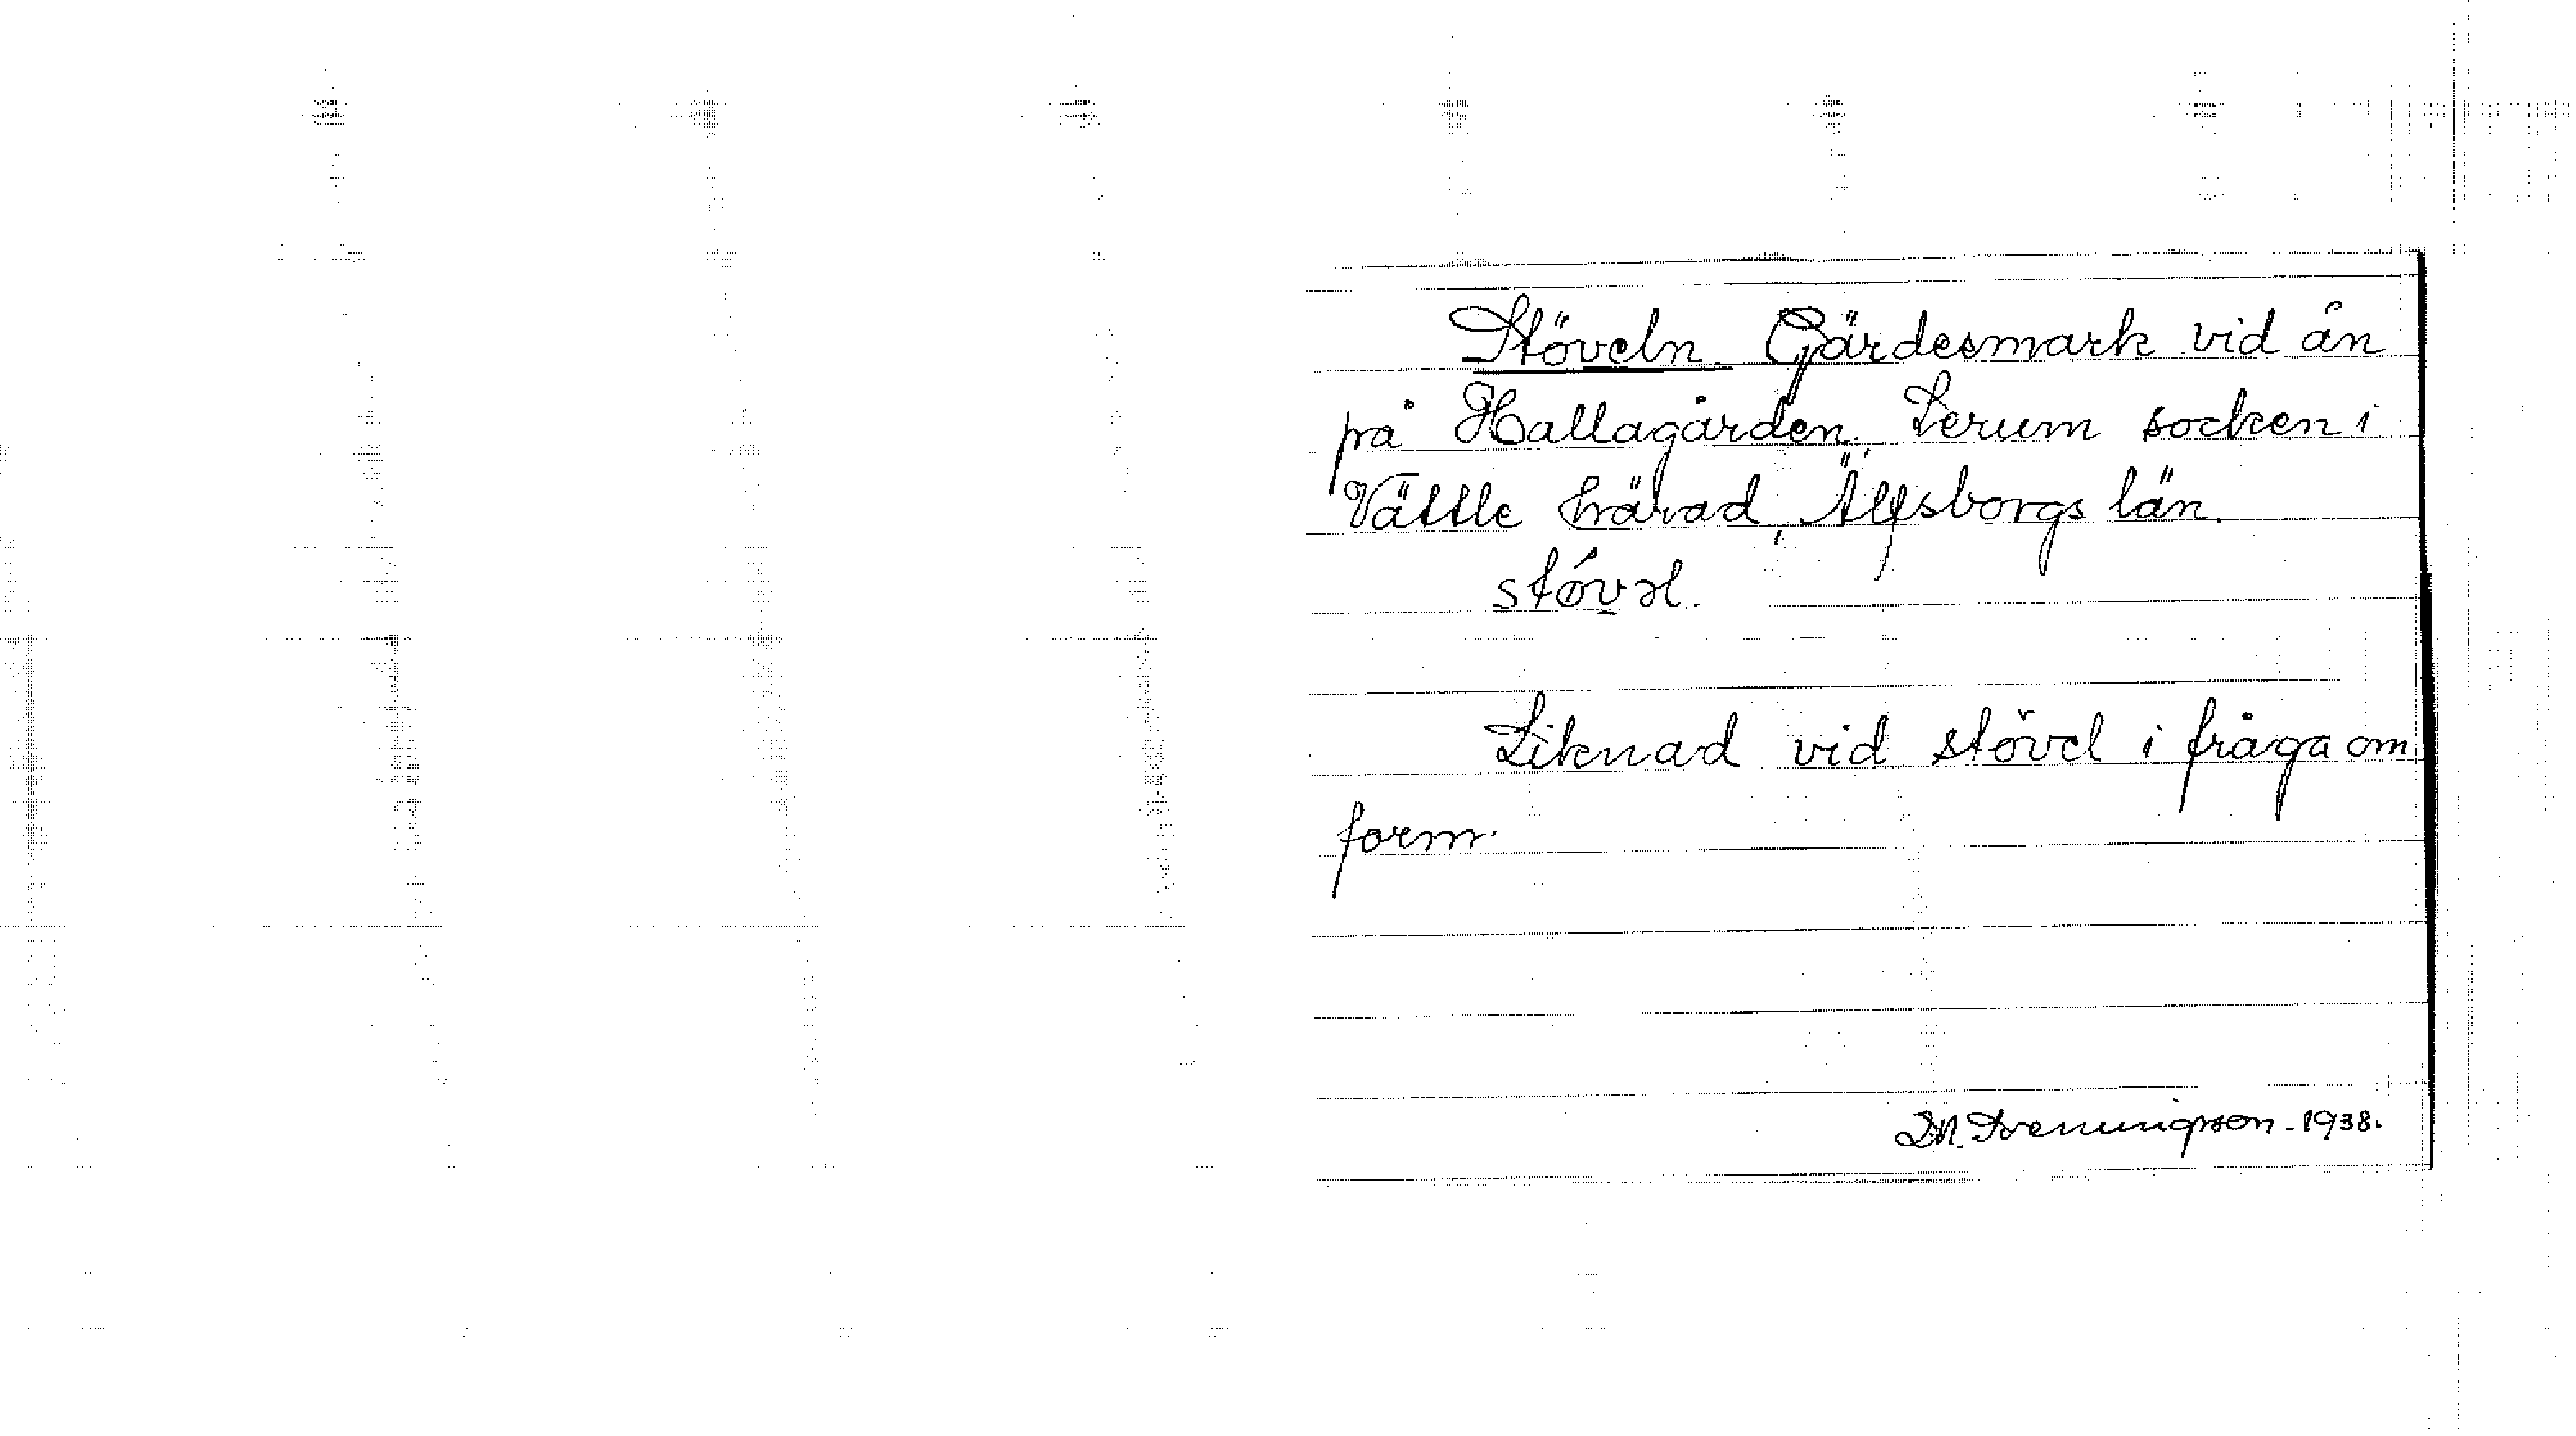 Stöveln. Gärdesmark vid ån
på Hallagården, Lerum socken i
Vättle härad, Älfsborgs län.
Liknad vid stövel i fråga om
form.
1938.